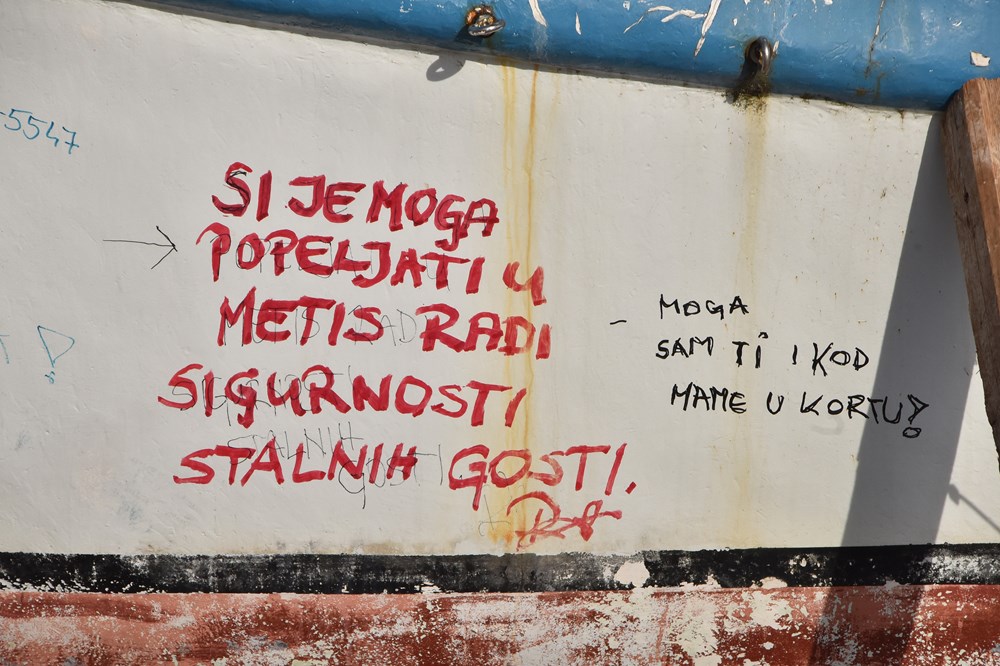 -5547
SI JE MOGA
POPELJATI U
METIS RADI
SIGURNOSTI
STALNIH GOSTI.
- MOGA
SAM TI I KOD
MAME U KORTU!